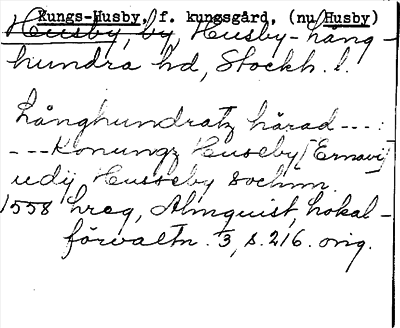 Kungs-Husby, f. kungsgård, (nu Husby)
Husby, by, Husby-Lång-
hundra hd, Stockh. l.
Långhundratz härad ---:
---Konungz Huseby [Ernavij]
udij Husseby sochnn.
1558 hreg, Almquist, Lokal-
förvaltn. 3, s. 216. orig.